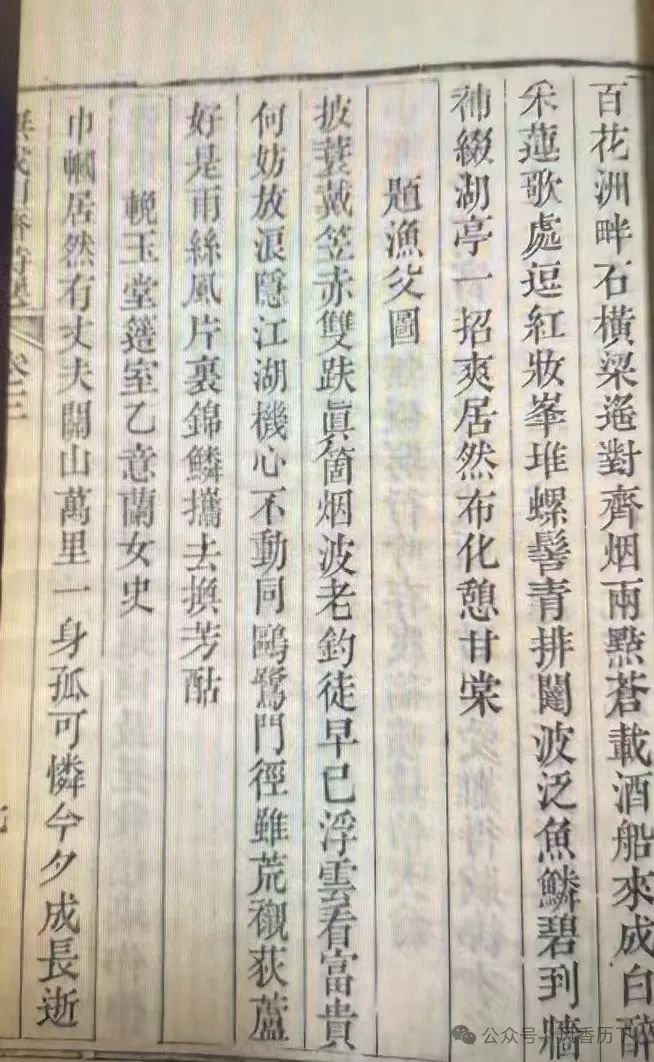 百花洲畔石橫梁遥對齊烟兩點蒼載酒船來成白醉
采蓮歌處逗紅妝峯堆螺髻青排闥波泛魚鱗碧到牆
補綴湖亭一招爽居然布化憩甘棠
題漁父圖
披蓑戴笠赤雙趺眞箇烟波老釣徒早已浮雲看富貴
何妨放浪隱江湖機心不動同鷗鷺門徑雖荒襯荻蘆
好是雨絲風片裏錦鱗攜去換芳酤
輓玉堂簉室乙意蘭女史
巾幗居然有丈夫關山萬里一身孤可憐今夕成長逝
卷二
公众号
香历下